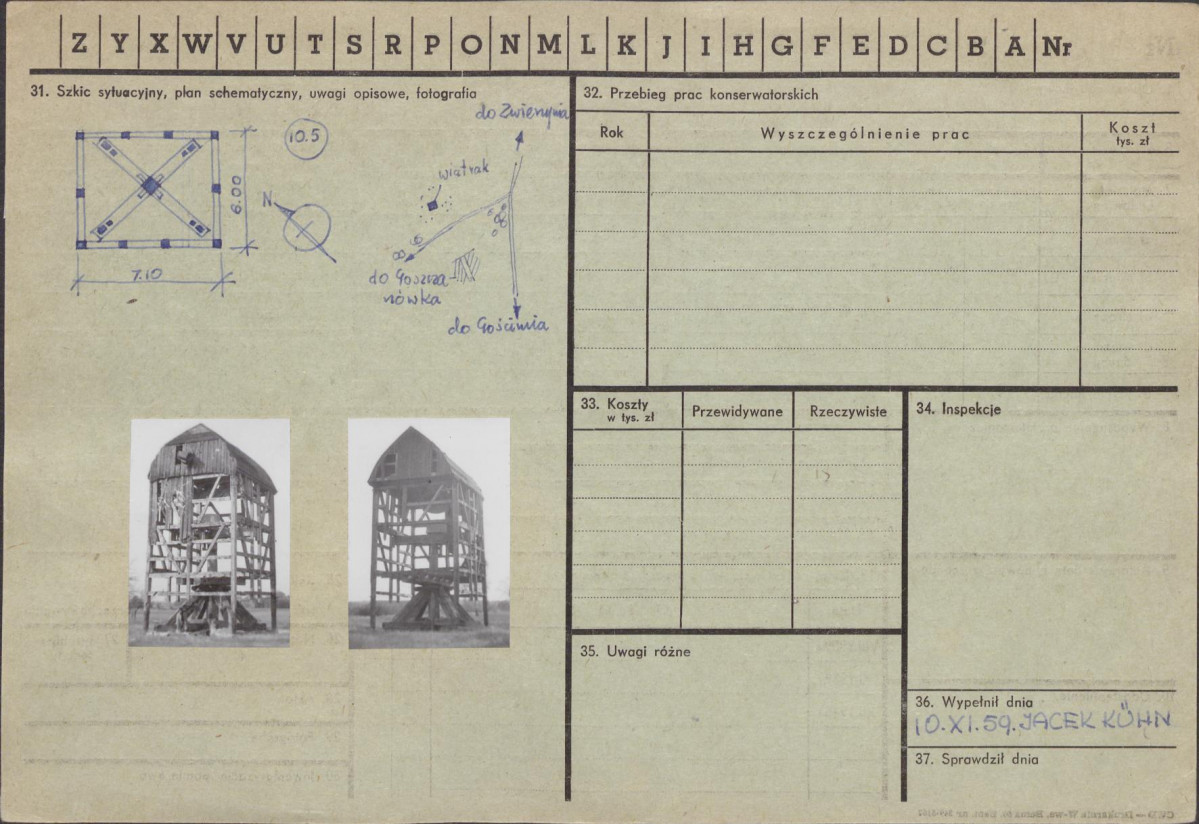 Z Y X W V U T S R P O N M L K J I H G F E D C B A Nr
31. Szkic sytuacyjny, plan schematyczny, uwagi opisowe, fotografia
10.5
6.00
7.10
N
wiatrak
do Zwierzynia
do Goszcza
nówka
do Gościmia
32. Przebieg prac konserwatorskich
Rok
Wyszczególnienie prac
Koszt
tys. zł
33. Koszty
w tys. zł
Przewidywane
Rzeczywiste
34. Inspekcje
35. Uwagi różne
36. Wypełnił dnia
10.XI.59. JACEK KÜHN
37. Sprawdził dnia